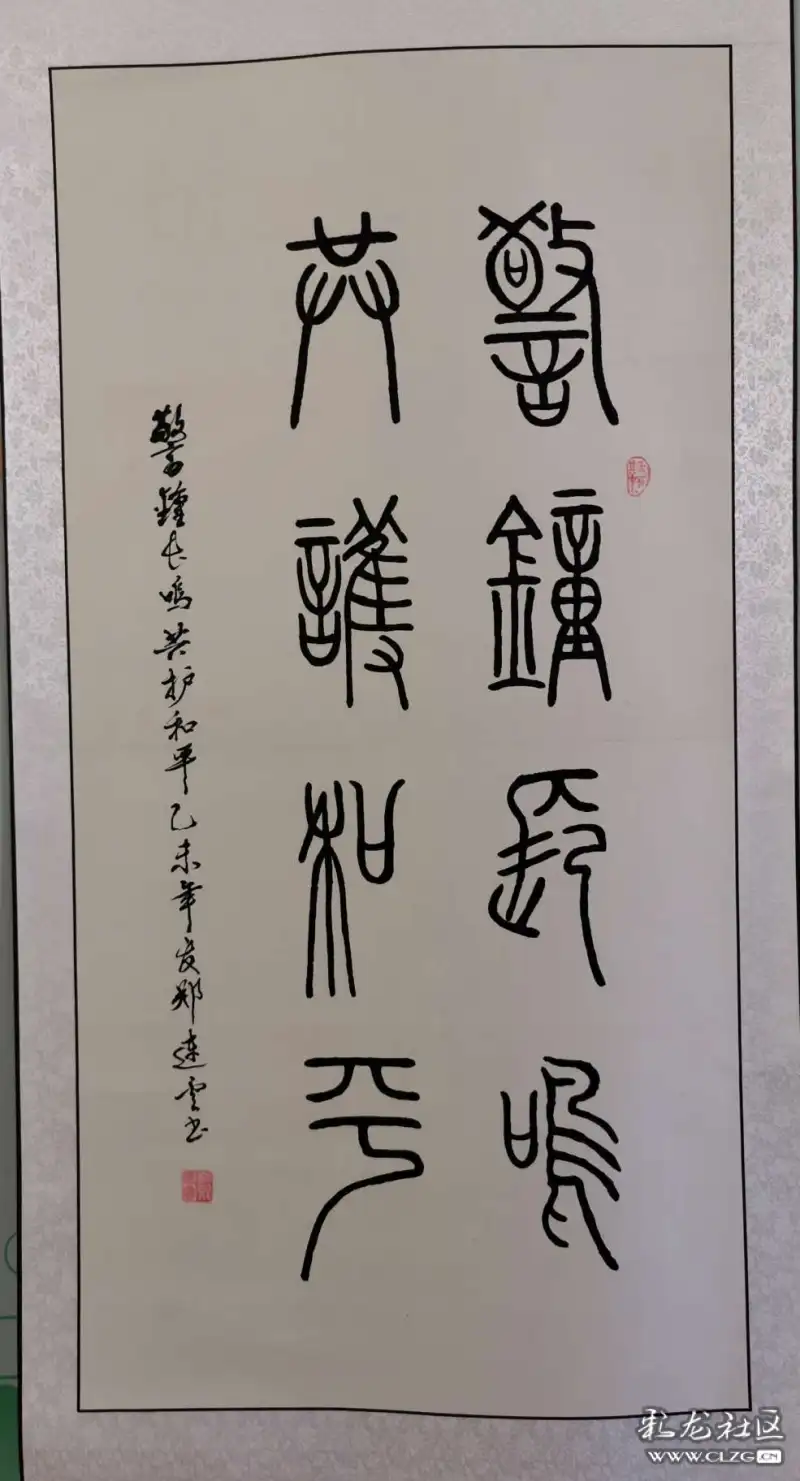 警鐘長鳴
共護和平
警鐘长鳴共护和平乙未年友郑連雲书
彩龙社区
WWW.CLZG.CN